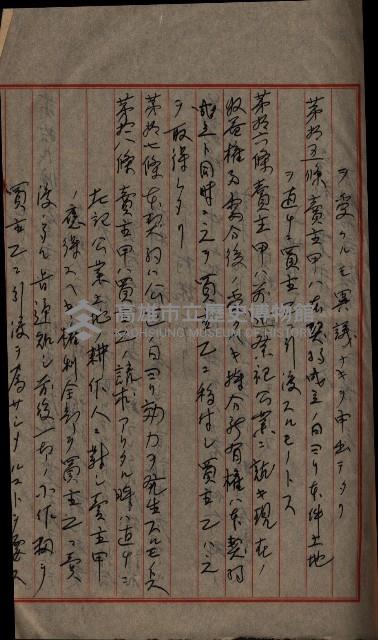 ヲ受クルモ異議ナキヲ申出テタリ
第拾五條 賣主甲ハ本契約成立ノ日ヨリ本件土地
ヲ直チニ買主乙ニ引渡スルモノトス
第拾六條 賣主甲ハ前述祭祀公業ニ就キ現在ノ
收益權及當今後ノ持分所有權本契約
成立ト同時ニ之ヲ買主乙ニ移付シ買主乙ハ之
ヲ取得シタリ
第拾七條 本契約ハ公日ヨリ効力ヲ發生スルモノ
第拾八條 賣主甲ハ買主乙ノ請求アリタル時ハ直チニ
左記公業土地ノ耕作人ニ對シ賣主甲
ノ應得スヘキ權利全部ヲ買主乙ニ賣
渡シタル旨通知シ前後一切ノ小作權ヲ
買主乙ニ引渡ヲ為サシメルコトヲ要ス
高雄市立歷史博物館
KAOHSIUNG MUSEUM OF HISTORY